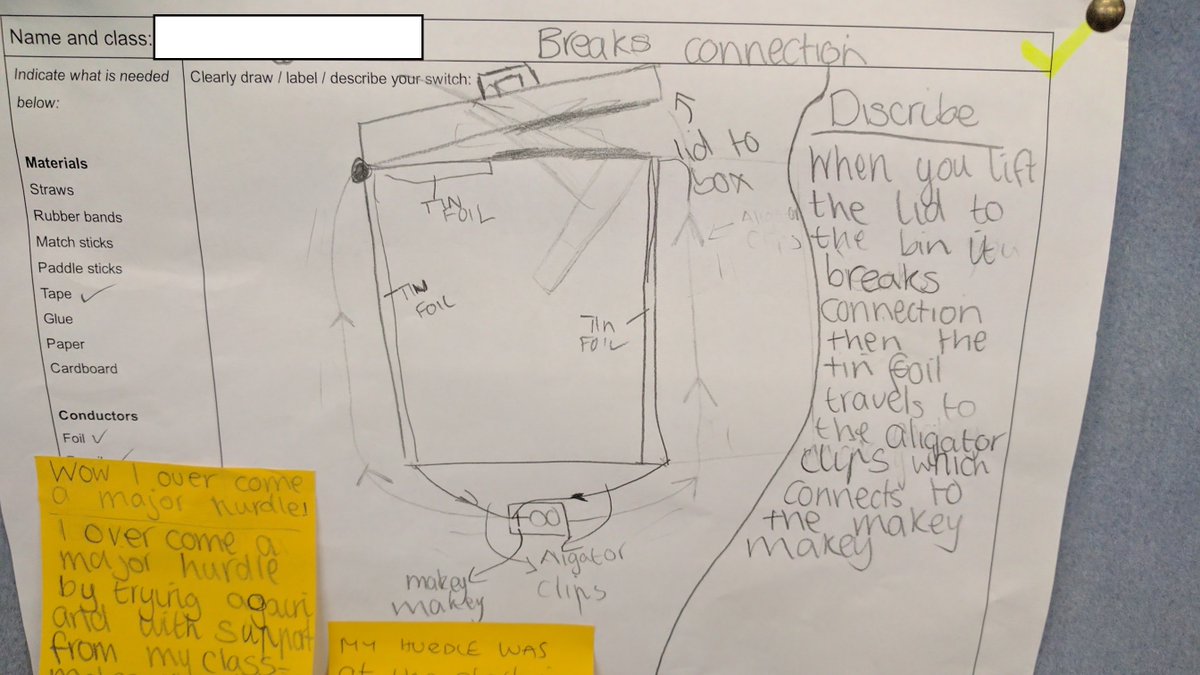 Name and class:
Breaks connection
Indicate what is needed
below:
Materials
Straws
Rubber bands
Match sticks
Paddle sticks
Tape
Glue
Paper
Cardboard
Conductors
Foil
Clearly draw / label / describe your switch:
lid to
box
TIN
FOIL
TIN
FOIL
TIn
FOIL
Aligator
Clips
makey
makey
Aligator
Clips
Discribe
When you lift
the lid to
the bin it
breaks
connection
then the
tin foil
travels to
the aligator
clips which
connects to
the makey
makey
Wow I over come
a major hurdle!
I over come a
major hurdle
by trying again
and with support
from my class-
MY HURDLE WAS